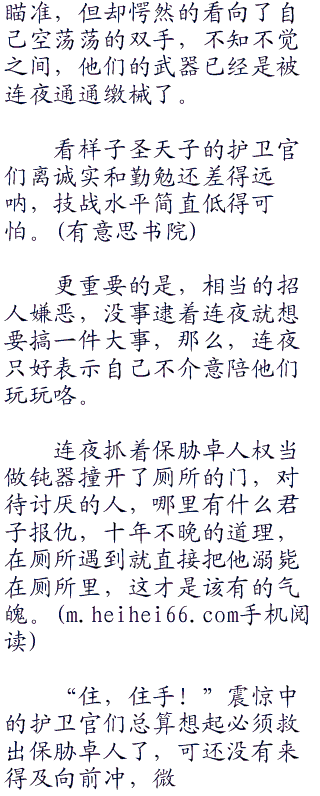 瞄准，但却愕然的看向了自
己空荡荡的双手，不知不觉
之间，他们的武器已经是被
连夜通通缴械了。
看样子圣天子的护卫官
们离诚实和勤勉还差得远
呐，技战水平简直低得可
怕。(有意思书院)
更重要的是，相当的招
人嫌恶，没事逮着连夜就想
要搞一件大事，那么，连夜
只好表示自己不介意陪他们
玩玩咯。
连夜抓着保胁卓人权当
做钝器撞开了厕所的门，对
待讨厌的人，哪里有什么君
子报仇，十年不晚的道理，
在厕所遇到就直接把他溺毙
在厕所里，这才是该有的气
魄。(m.heihei66.com手机阅
读)
“住，住手！”震惊中
的护卫官们总算想起必须救
出保胁卓人了，可还没有来
得及向前冲，微